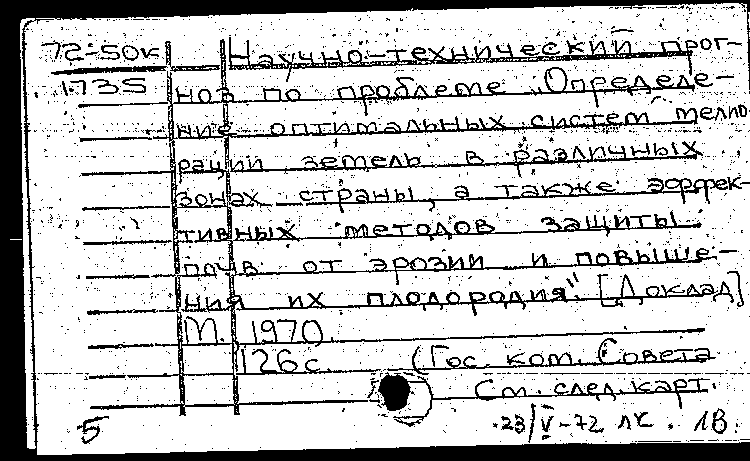 72-50к Научно-технический прог-
1735 ноз по проблеме „Определе-
ние оптимальных систем мелио
рации земель в различных
зонах страны, а также эффек-
тивных методов защиты
почв от эрозии и повыше-
ния их плодородия". [Доклад]
М. 1970.
126 с. (Гос. ком. Совета
См. след. карт.
5 23/V-72 ЛК. 1В.